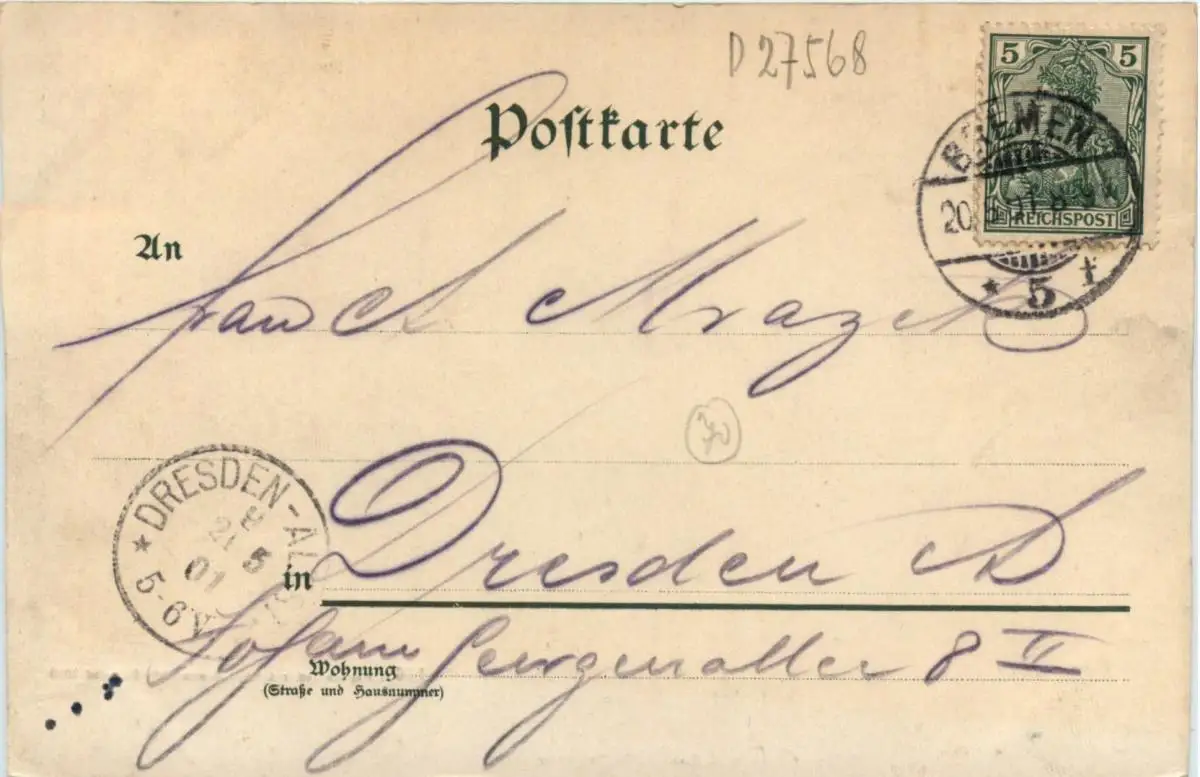 D 27568
Postkarte
5 5
REICHSPOST
BREMEN
20 5 01
* 5 †
An
A Mrazek
70
* DRESDEN-AL
21 5
01
5-6 V
in Dresden A
Johann Georgenallee 8 II
Wohnung
(Straße und Hausnummer)